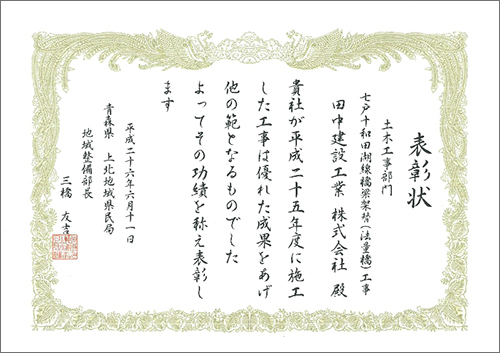 表彰状
土木工事部門
七戸十和田湖線橋梁架替(法量橋)工事
田中建設工業 株式会社 殿
貴社が平成二十五年度に施工
した工事は優れた成果をあげ
他の範となるものでした
よってその功績を称え表彰し
ます
平成二十六年六月十一日
青森県 上北地域県民局
地域整備部長
三橋 友吉